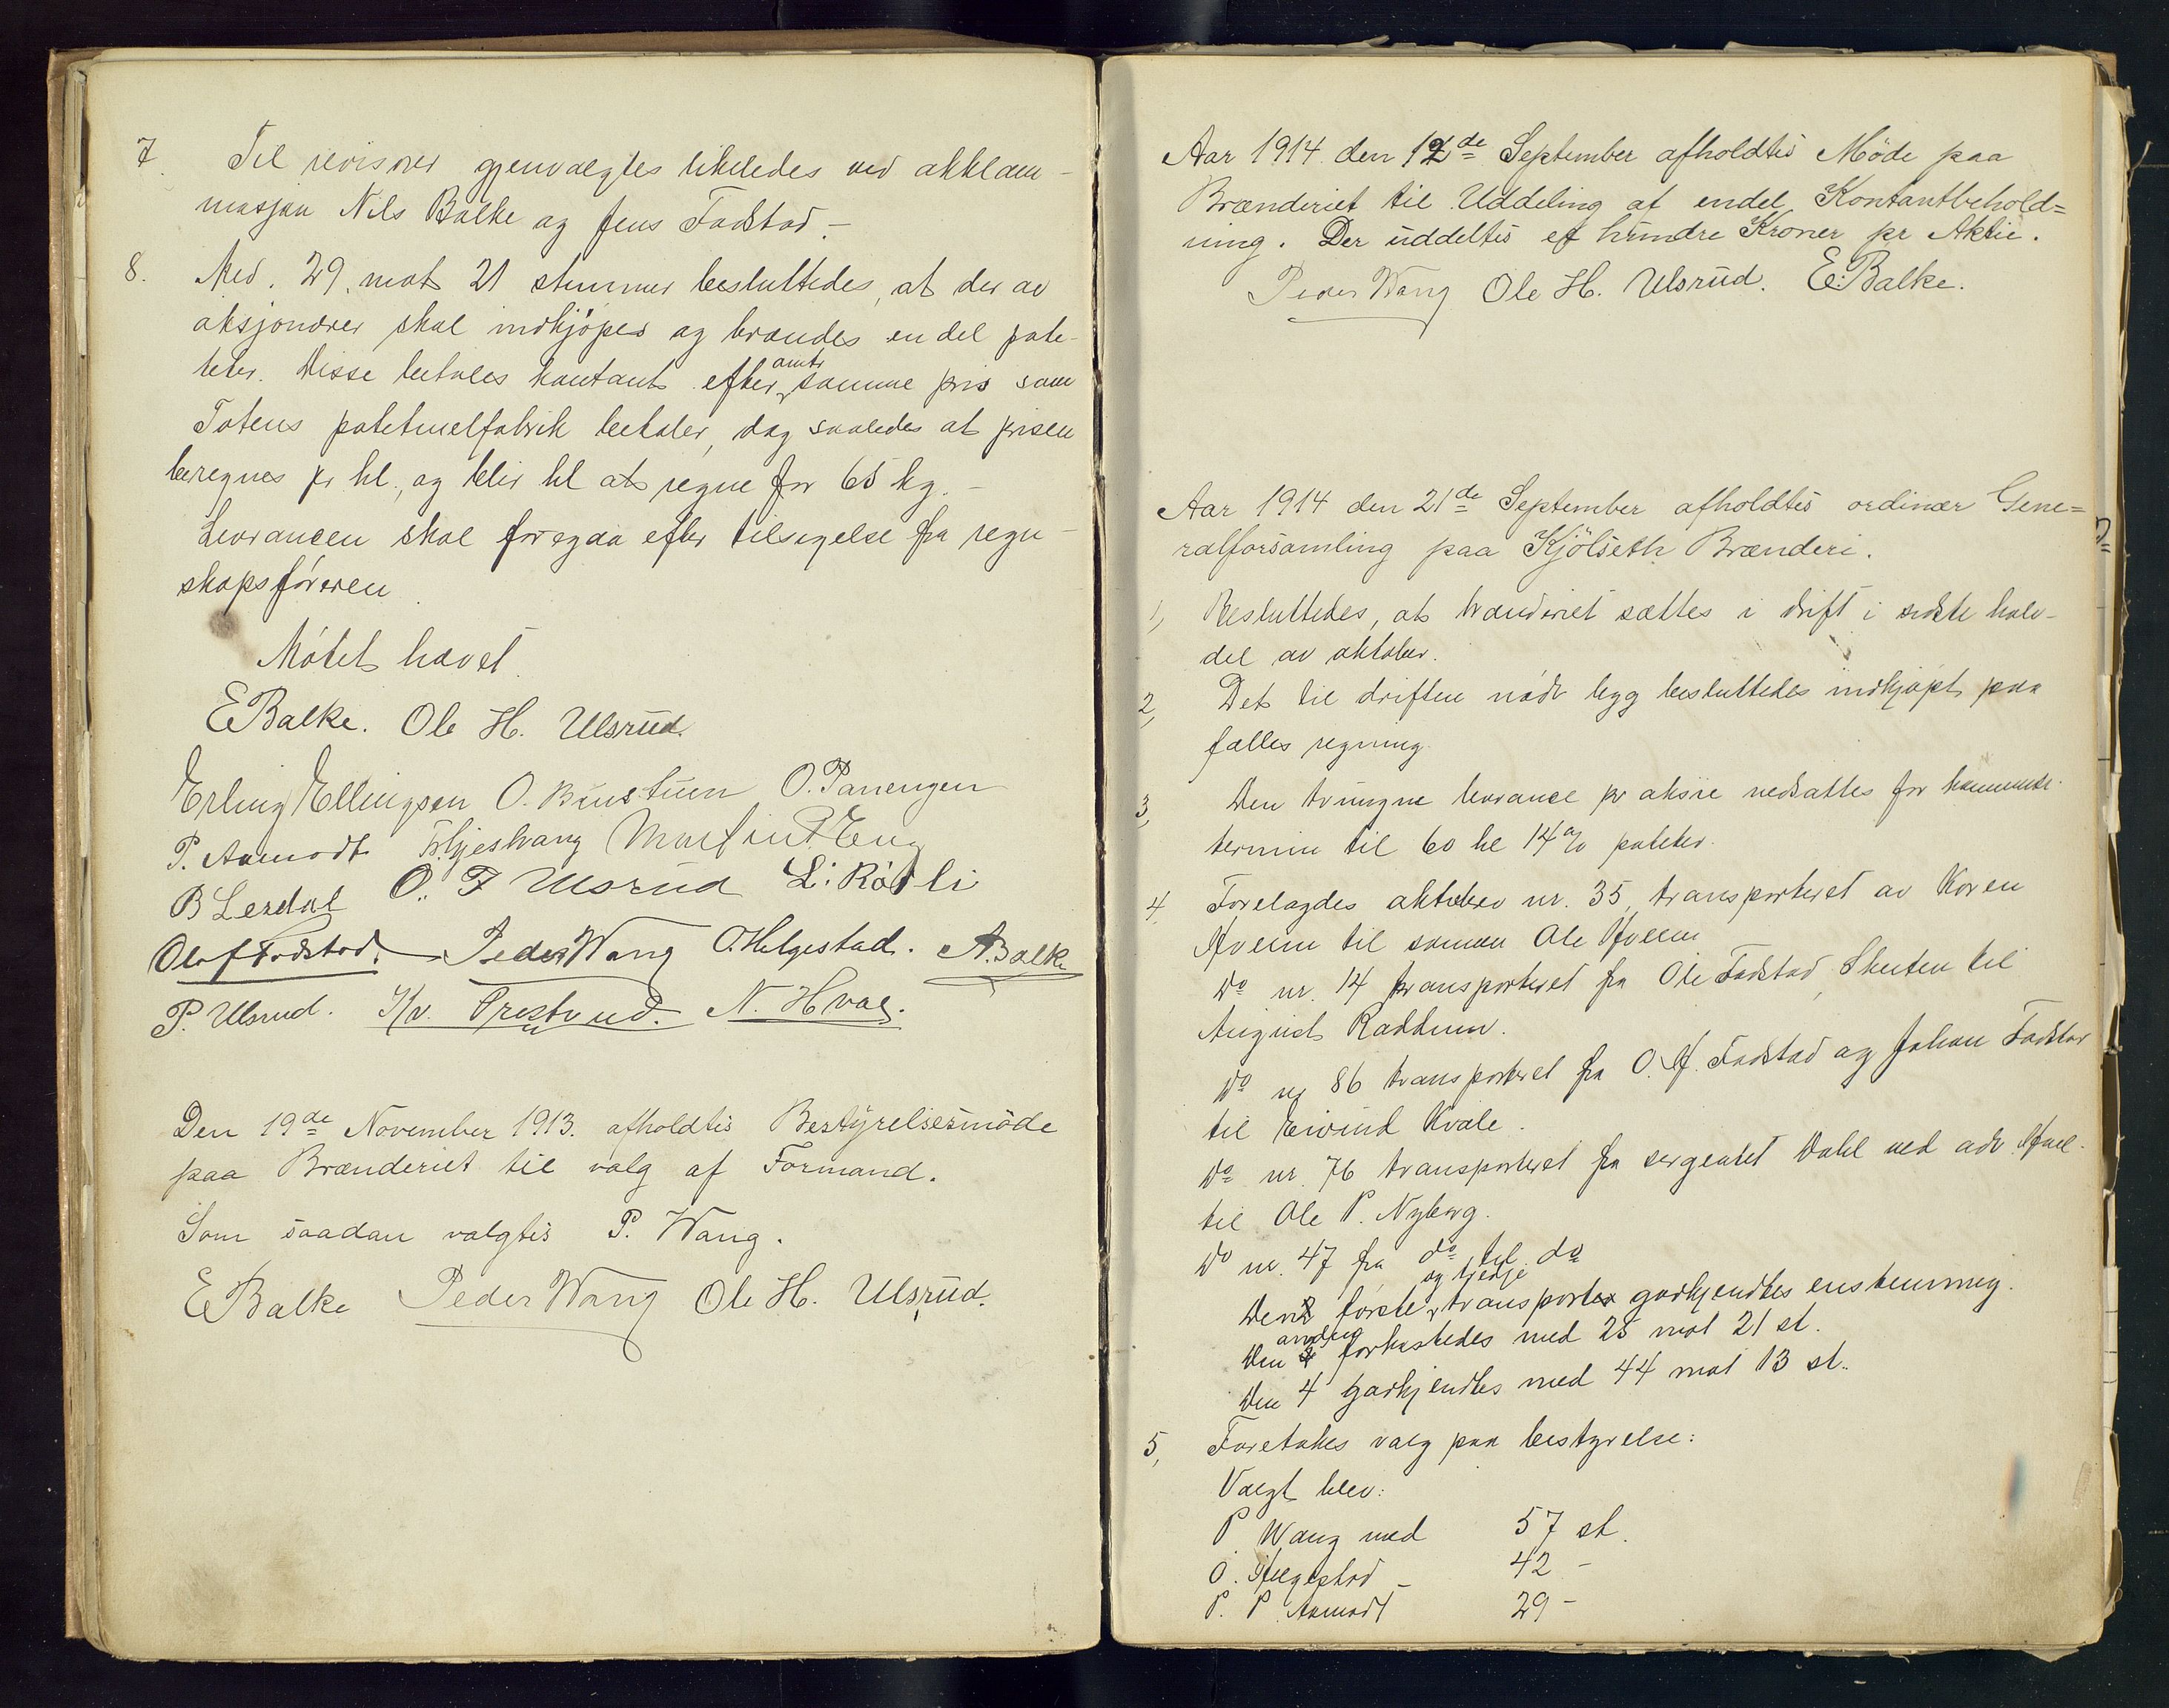 7. Til revisorer gjenvalgtes likeledes ved akklam-
masjon Nils Balke og Jens Fodstad.-
8. Med 29 mot 21 stemmer besluttedes, at der av
aksjonærer skal indkjøpes og brændes en del pote-
teter. Disse betales kontant efter amtr samme pris som
Totens potetmelfabrik betaler, dog saaledes at prisen
beregnes pr hl., og blir hl at regne for 65 kg. -
Leverancen skal foregaa efter tilsigelse fra regn-
skapsføreren
Møtet hævet.
E Balke. Ole H. Ulsrud.
Erling Ellingsen O. O. Panengen
P. Aamodt Martin P. Eng
B Lerdal O. F Ulsrud L: Rødli
Olaf Fodstad. Peder Wang O. Helgestad. A. Balke
P. Ulsrud. Kr. Prestrud. N. Hval.
Den 19de November 1913. afholdtes Bestyrelsesmøde
paa Brænderiet til valg af Formand.
Som saadan valgtes P. Wang.
E Balke Peder Wang Ole H. Ulsrud.
Aar 1914 den 12de September afholdtes Møde paa
Brænderiet til Uddeling af endel Kontantbehold=
ning. Der uddeltes et hundre Kroner pr Aktie.
Peder Wang Ole H. Ulsrud. E: Balke.
Aar 1914 den 21de September afholdtes ordinær Gene=
ralforsamling paa Kjölseth Brænderi.
1, Besluttedes, at brænderiet sættes i drift i sidste halv-
del av oktober.
2, Det til driften nødv bygg besluttedes indkjøpt paa
fælles regning.
3, Den tvungne leverance pr aksie nedsattes for kommende
termin til 60 hl 14% poteter.
4, Forelagdes aktiebrev nr. 35, transporteret av Karen
Hveem til sønnen Ole Hveem
Do nr. 14 transporteret fra Ole Fodstad, Skuten til
August Raddum.
Do nr 86 transporteret fra O. H. Fodstad og Johan Fodstad
til Eivind Kvale.
Do nr. 76 transporteret fra sergeant Dahl ved adv.
til Ole P. Nyborg.
Do nr. 47 fra do til do
Den første og tredje transport godkjendtes enstemmig.
Den andre forkastedes med 28 mot 21 st.
Den 4 godkjendtes med 44 mot 13 st.
5, Foretokes valg paa bestyrelse:
Valgt blev:
P. Wang med 57 st.
O. Helgestad - 42 -
P. P. Aamodt 29 -